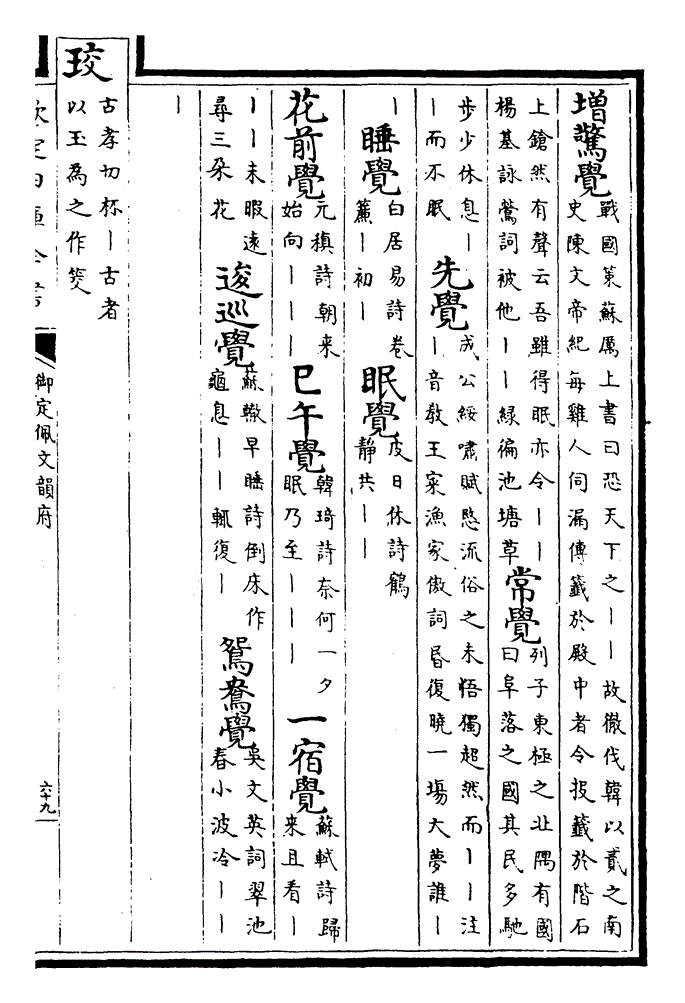 增驚覺
戰國策蘇厲上書曰恐天下之丨丨故徵伐韓以貳之南
史陳文帝紀每雞人伺漏傳籤於殿中者令投籤於階石
上鎗然有聲云吾雖得眠亦令丨丨
楊基詠鶯詞被他丨丨綠徧池塘草
常覺
列子東極之北隅有國
曰阜落之國其民多馳
步少休息丨
丨而不眠
先覺
成公綏嘯賦愍流俗之未悟獨超然而丨丨注
丨音教王寀漁家傲詞昏復曉一塲大夢誰丨
丨
睡覺
白居易詩卷
簾丨初丨
眠覺
皮日休詩鶴
靜共丨丨
花前覺
元稹詩朝来
始向丨丨丨
巳午覺
韓琦詩奈何一夕
眠乃至丨丨丨
一宿覺
蘇軾詩歸
来且看丨
丨丨未暇遠
尋三朵花
逡巡覺
蘇轍早睡詩倒床作
龜息丨丨輒復丨
鴛鴦覺
吳文英詞翠池
春小波冷丨丨
丨
珓
古孝切杯丨古者
以玉為之作筊
欽定四庫全書
御定佩文韻府
六十九